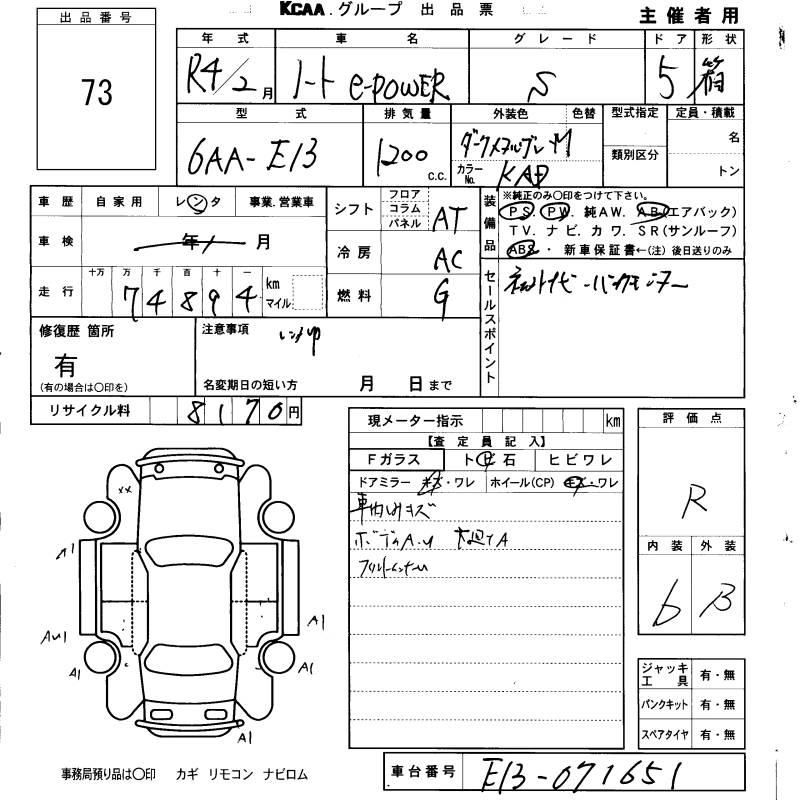 KCAA.グループ 出品票
主催者用
出品番号
73
年式 車名 グレード ドア 形状
R4/2月 ノート e-POWER S 5 箱
型式 排気量 外装色 色替 型式指定 定員・積載
6AA-E13 1200 c.c. カラーNo. KAD 類別区分 名
トン
車歴 自家用 レンタ 事業.営業車
車検 年 月
走行 十万 万 千 百 十 一
74894 km マイル
シフト フロア コラム パネル AT
冷房 AC
燃料 G
装備品
※純正のみ〇印をつけて下さい。
PS. PW. 純AW. AB(エアバック)
TV. ナビ. カワ. SR(サンルーフ)
ABS・ 新車保証書←(注) 後日送りのみ
セールスポイント
修復歴 箇所
有
(有の場合は〇印を)
注意事項
名変期日の短い方 月 日まで
リサイクル料 8170円
現メーター指示 km
【査定員記入】
Fガラス トビ石 ヒビワレ
ドアミラー キズ・ワレ ホイール(CP) キズ・ワレ
車内シミキズ
評価点
R
内装 外装
b B
XX
A1
A1
A1
A1
A1
ジャッキ工具 有・無
パンクキット 有・無
スペアタイヤ 有・無
事務局預り品は〇印 カギ リモコン ナビロム
車台番号 E13-071651